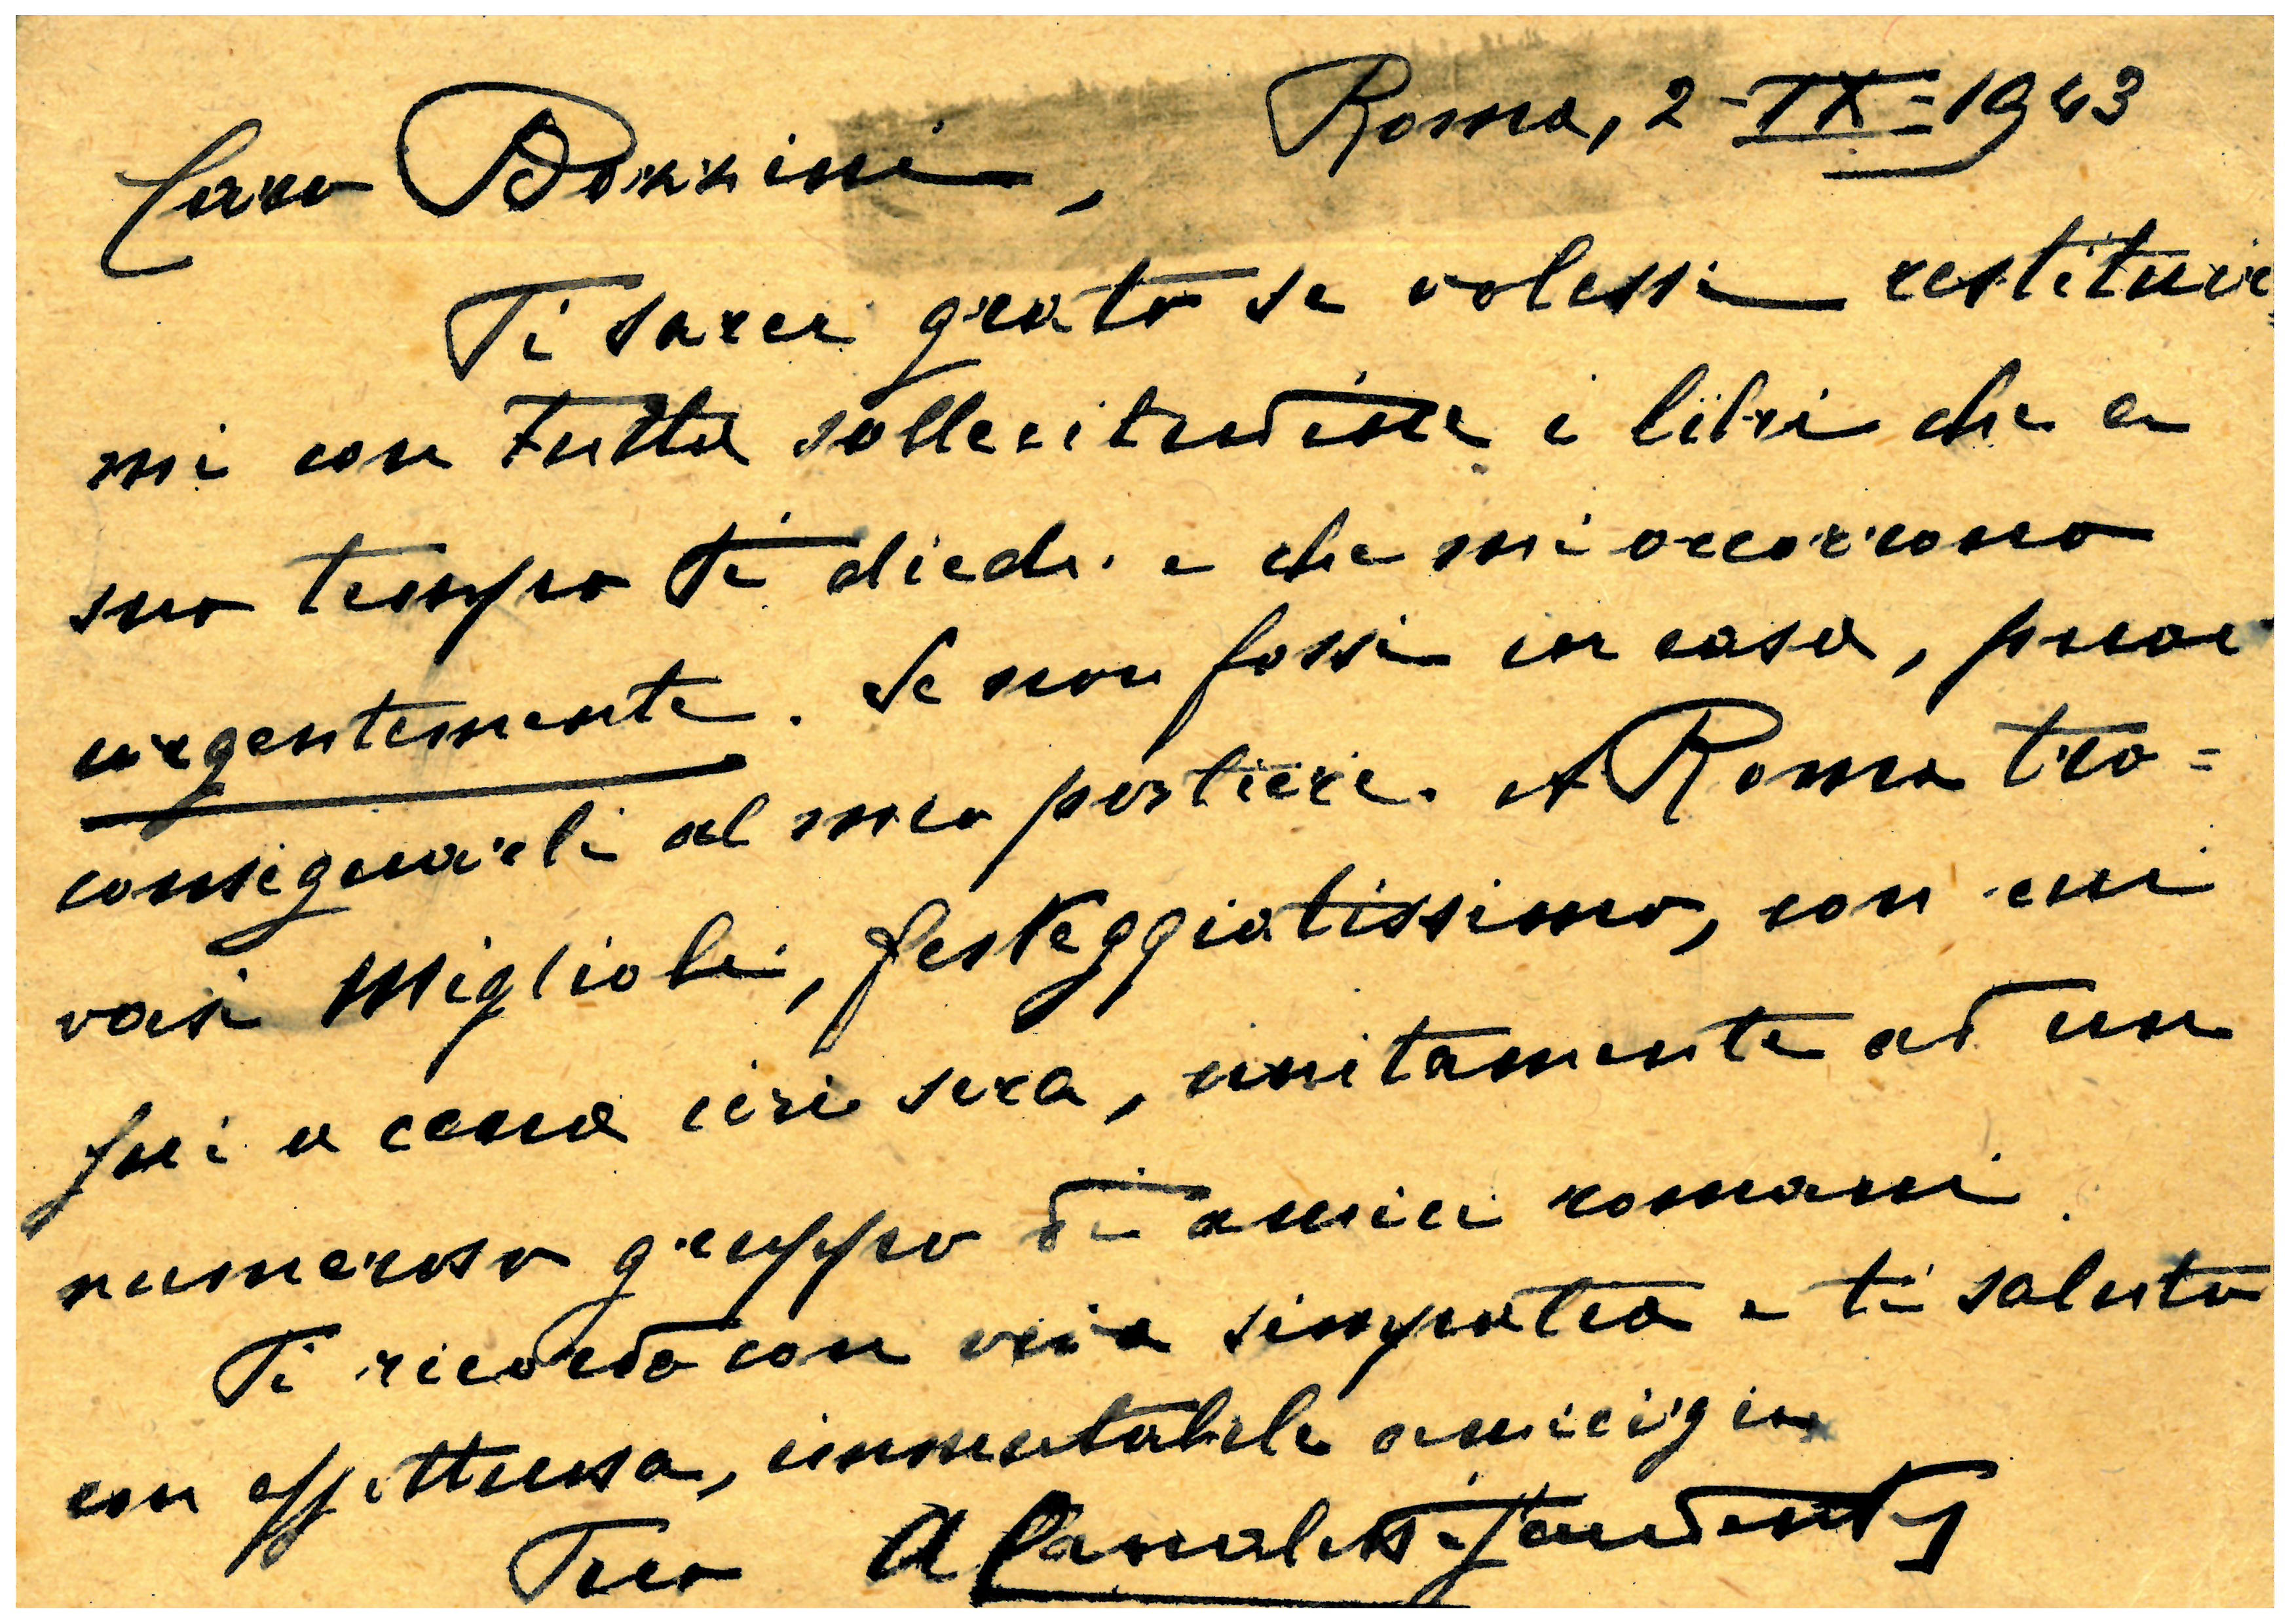 Roma, 2-IX-1943
Caro Bonnini,
Ti sarei grato se volessi restituir
mi con tutta sollecitudine i libri che a
suo tempo ti diedi e che mi occorrono
urgentemente. Se non fossi in casa, puoi
consegnarli al mio portiere. A Roma tro=
vasi Miglioli, festeggiatissimo, con cui
fui a cena ieri sera, unitamente ad un
numeroso gruppo di amici romani.
Ti ricordo con viva simpatia e ti saluto
con affettuosa, immutabile amicizia
Tuo A Canaletti Gaudenti